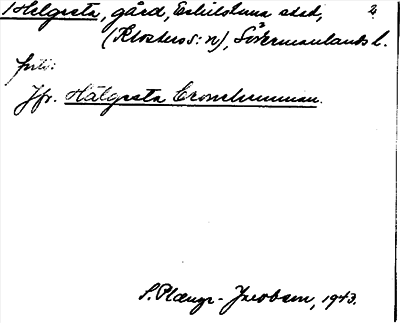 1 Helgesta, gård, Eskilstuna stad, 2
(Klosters s:n), Södermanlands l.
Jfr. Hälgesta Cronehemman.
S. Plænge-Jacobson, 1943.